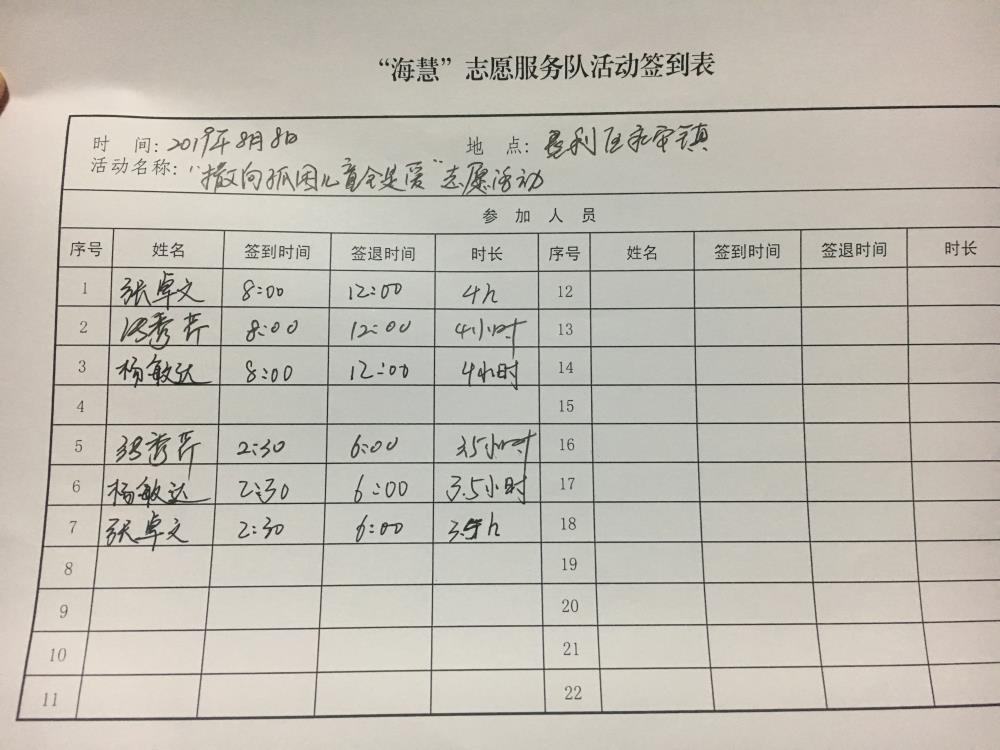 “海慧”志愿服务队活动签到表
时 间：2019年8月8日 地 点：垦利区永安镇
活动名称：“撒向孤困儿童全是爱”志愿活动
参 加 人 员
序号 姓名 签到时间 签退时间 时长 序号 姓名 签到时间 签退时间 时长
1 张卓文 8:00 12:00 4h 12
2 秀芹 8:00 12:00 4小时 13
3 杨敏达 8:00 12:00 4小时 14
4 15
5 秀芹 2:30 6:00 3.5小时 16
6 杨敏达 2:30 6:00 3.5小时 17
7 张卓文 2:30 6:00 3.5h 18
8 19
9 20
10 21
11 22